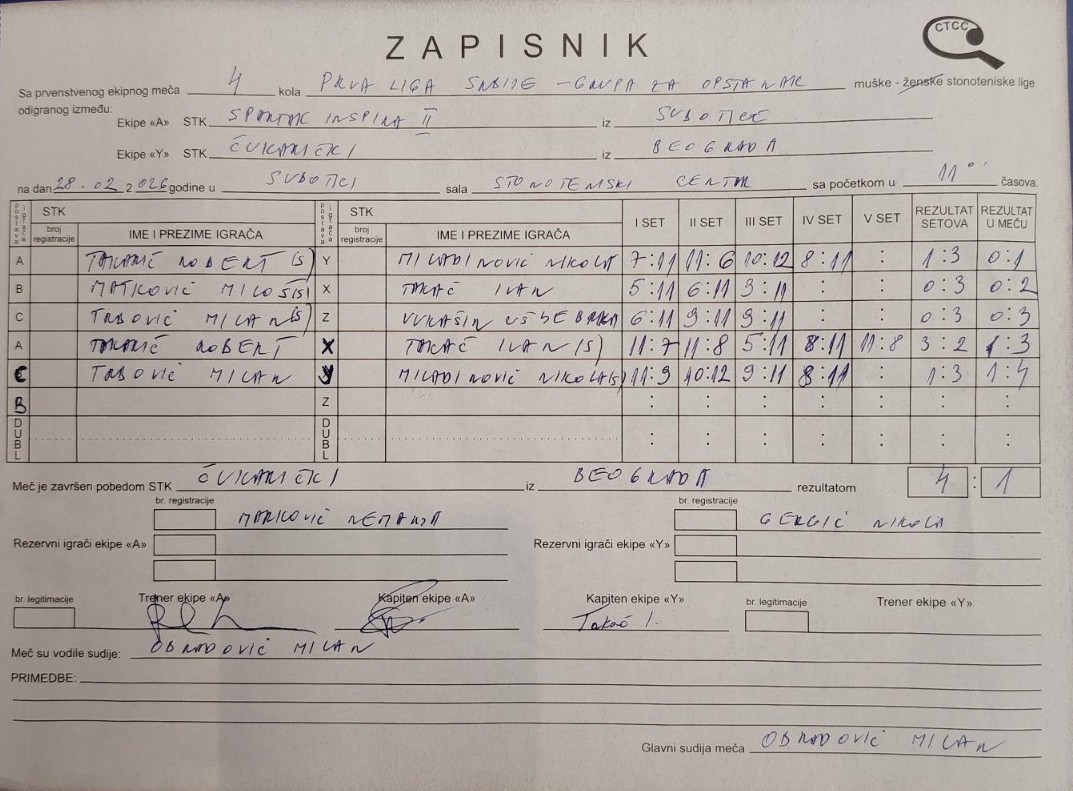 ZAPISNIK
CTCC
Sa prvenstvenog ekipnog meča 4 kola PRVA LIGA SRBIJE - GRUPA ZA OPSTANAK muške - ženske stonoteniske lige
odigranog između:
Ekipe «A» STK SPARTAK INSPIRA II iz SUBOTICE
Ekipe «Y» STK ČUKARIČKI iz BEOGRADA
na dan 28.02.2026 godine u SUBOTICI sala STONOTENISKI CENTAR sa početkom u 11 00 časova.
postava igrača STK postava igrača STK I SET II SET III SET IV SET V SET REZULTAT SETOVA REZULTAT U MEČU
broj registracije IME I PREZIME IGRAČA broj registracije IME I PREZIME IGRAČA
A ROBERT (S) Y MILADINOVIĆ NIKOLA 7:11 11:6 10:12 8:11 : 1:3 0:1
B MATKOVIĆ MILOŠ (S) X TAKAČ IVAN 5:11 6:11 3:11 : : 0:3 0:2
C TRBOVIĆ MILAN (S) Z VUKAŠIN 6:11 9:11 9:11 : : 0:3 0:3
A ROBERT X TAKAČ IVAN (S) 11:7 11:8 5:11 8:11 11:8 3:2 1:3
C TRBOVIĆ MILAN Y MILADINOVIĆ NIKOLA (S) 11:9 10:12 9:11 8:11 : 1:3 1:4
B Z : : : : : : :
DUBL DUBL : : : : : : :
Meč je završen pobedom STK ČUKARIČKI iz BEOGRADA rezultatom 4 : 1
br. registracije br. registracije
MARKOVIĆ NEMANJA GERGIĆ NIKOLA
Rezervni igrači ekipe «A» Rezervni igrači ekipe «Y»
br. legitimacije Trener ekipe «A» Kapiten ekipe «A» Kapiten ekipe «Y» br. legitimacije Trener ekipe «Y»
Takač I.
Meč su vodile sudije: OBRADOVIĆ MILAN
PRIMEDBE:
Glavni sudija meča OBRADOVIĆ MILAN